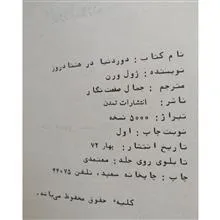 نام کتاب : دور دنیا در هشتاد روز
نویسنده : ژول ورن
مترجم : جمال صنعت نگار
ناشر : انتشارات تمدن
تیراژ : ۵۰۰۰ نسخه
نوبت چاپ : اول
تاریخ انتشار : بهار ۷۲
تابلوی روی جلد : معتمدی
چاپ : چاپخانه سعید، تلفن ۴۴۰۷۵
کلیه حقوق محفوظ می‌باشد.